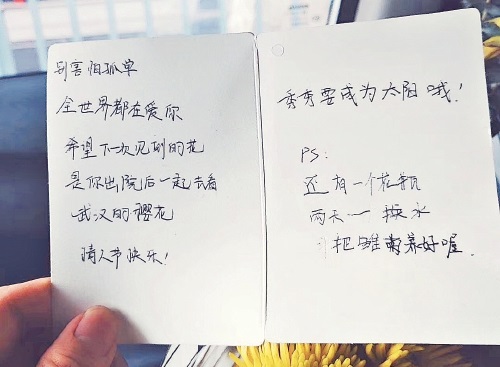 别害怕孤单
全世界都在爱你
希望下一次见到的花
是你出院后一起去看
武汉的樱花
情人节快乐！
秀秀要成为太阳哦！
PS:
还有一个花瓶
两天一换水
把雏菊养好喔